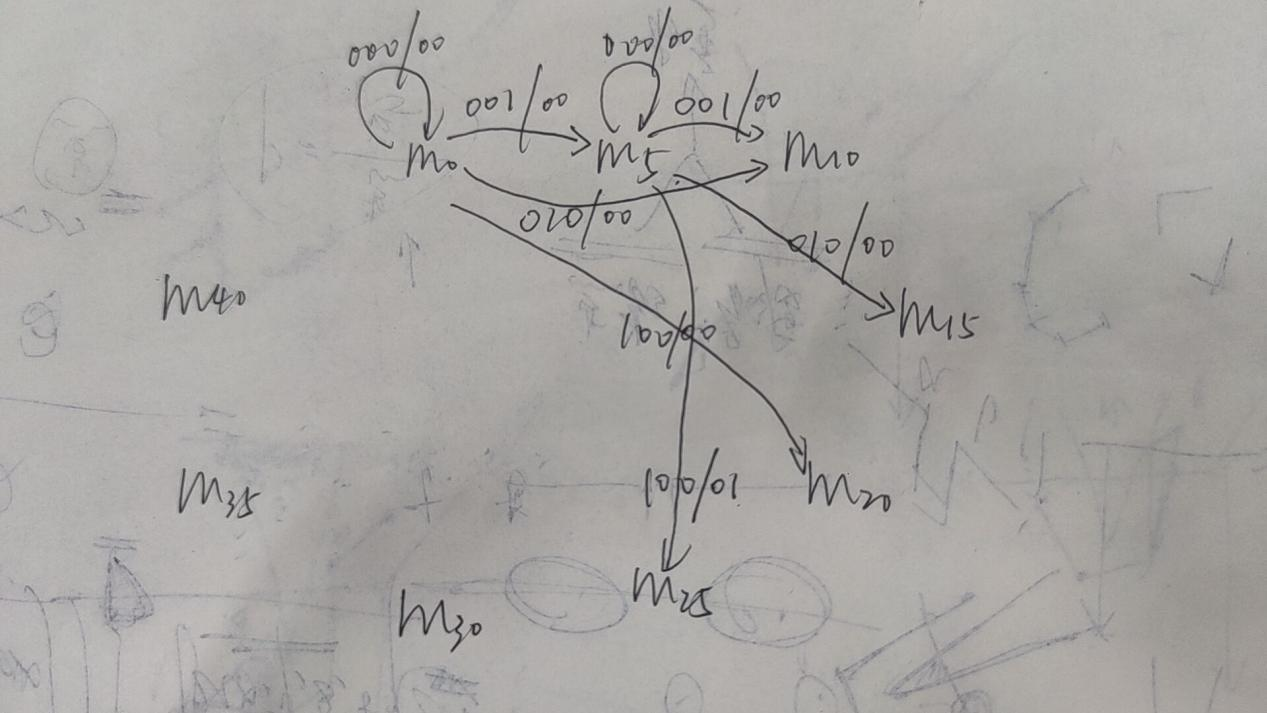 000/00 000/00
001/00 001/00
M0 M5 M10
010/00 010/00
M40
100/00 M15
M35 100/01 M20
M25
M30